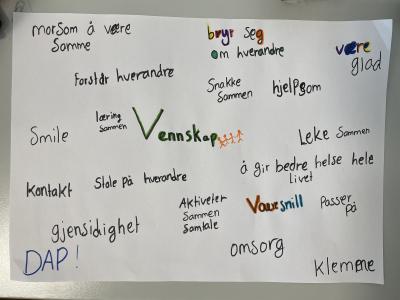 morSom å være
Samme
bryr seg
om hverandre
være
glad
Forstår hverandre
Snakke
Sammen
hjelpsom
Smile
læring
Sammen
Vennskap
Leke Sammen
å gir bedre helse hele
livet
Kontakt
Stole på hverandre
Aktiveter
Sammen
Samtale
Være snill
Passer
på
gjensidighet
DAP!
omsorg
Klemene